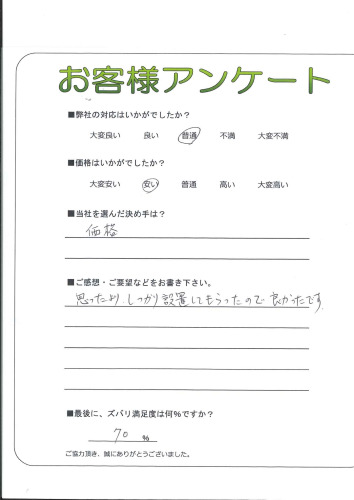 お客様アンケート
■弊社の対応はいかがでしたか？
大変良い 良い 普通 不満 大変不満
■価格はいかがでしたか？
大変安い 安い 普通 高い 大変高い
■当社を選んだ決め手は？
価格
■ご感想・ご要望などをお書き下さい。
思ったより しっかり設置してもらったので 良かったです。
■最後に、ズバリ満足度は何％ですか？
70 ％
ご協力頂き、誠にありがとうございました。